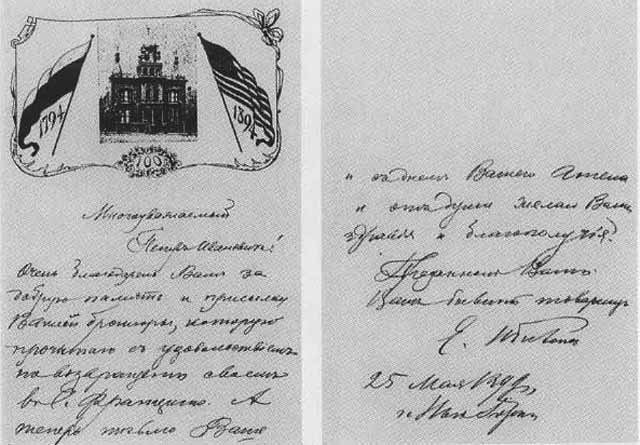 1794
1894
100
Многоуважаемый
Петръ Ивановичъ!
Очень благодаренъ Вамъ за
добрую память и присылку
Вашей брошюры, которую
прочитаю съ удовольствіемъ
по возвращеніи своемъ
въ С. Франциско. А
теперь только Ваше
и
и отъ души желаю Вамъ
здравія и благополучія.
Преданный Вамъ
Вашъ бывшій товарищъ
25 Мая